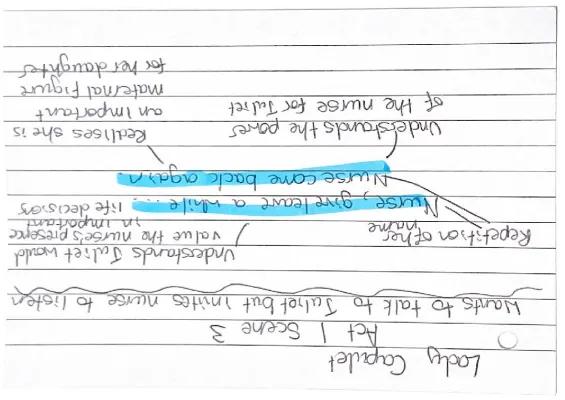 Lady Capulet
Act 1 Scene 3
Wants to talk to Juliet but invites nurse to listen
Understands Juliet would
value the nurse's presence
in important
life decisions
Repetition of her
name
Nurse, give leave a while ...
Nurse come back again.
Understands the power
of the nurse for Juliet
Realises she is
an important
maternal figure
for her daughter